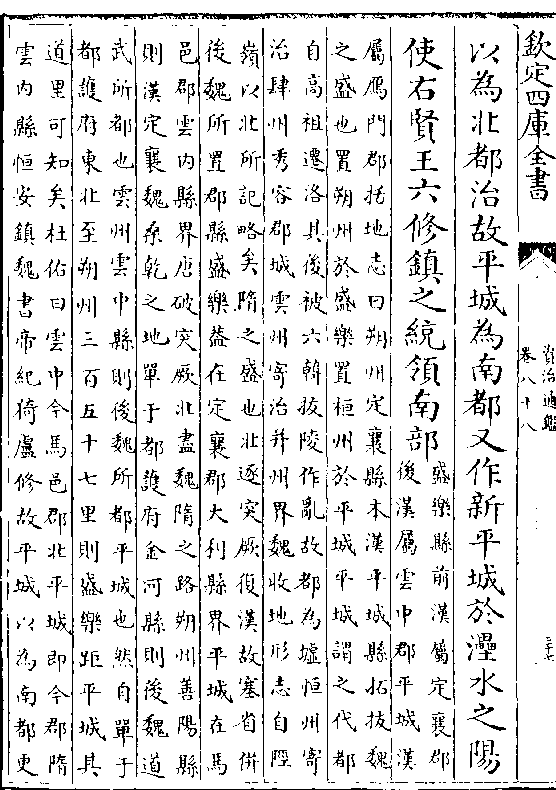 欽定四庫全書
資治通鑑
卷八十八
三十七
以為北都治故平城為南都又作新平城於㶟水之陽
使右賢王六修鎮之統領南部
盛樂縣前漢屬定襄郡
後漢屬雲中郡平城漢
屬鴈門郡括地志曰朔州定襄縣本漢平城縣拓拔魏
之盛也置朔州於盛樂置桓州於平城平城謂之代都
自高祖遷洛其後被六韓拔陵作亂故都為墟恒州寄
治肆州秀容郡城雲州寄治并州界魏收地形志自陘
嶺以北所記略矣隋之盛也北逐突厥復漢故塞省併
後魏所置郡縣盛樂葢在定襄郡大利縣界平城在馬
邑郡雲内縣界唐破突厥北盡魏隋之路朔州善陽縣
則漢定襄魏桑乾之地單于都護府金河縣則後魏道
武所都也雲州雲中縣則後魏所都平城也然自單于
都護府東北至朔州三百五十七里則盛樂距平城其
道里可知矣杜佑曰雲中今馬邑郡北平城即今郡隋
雲内縣恒安鎮魏書帝紀猗盧修故平城以為南都更